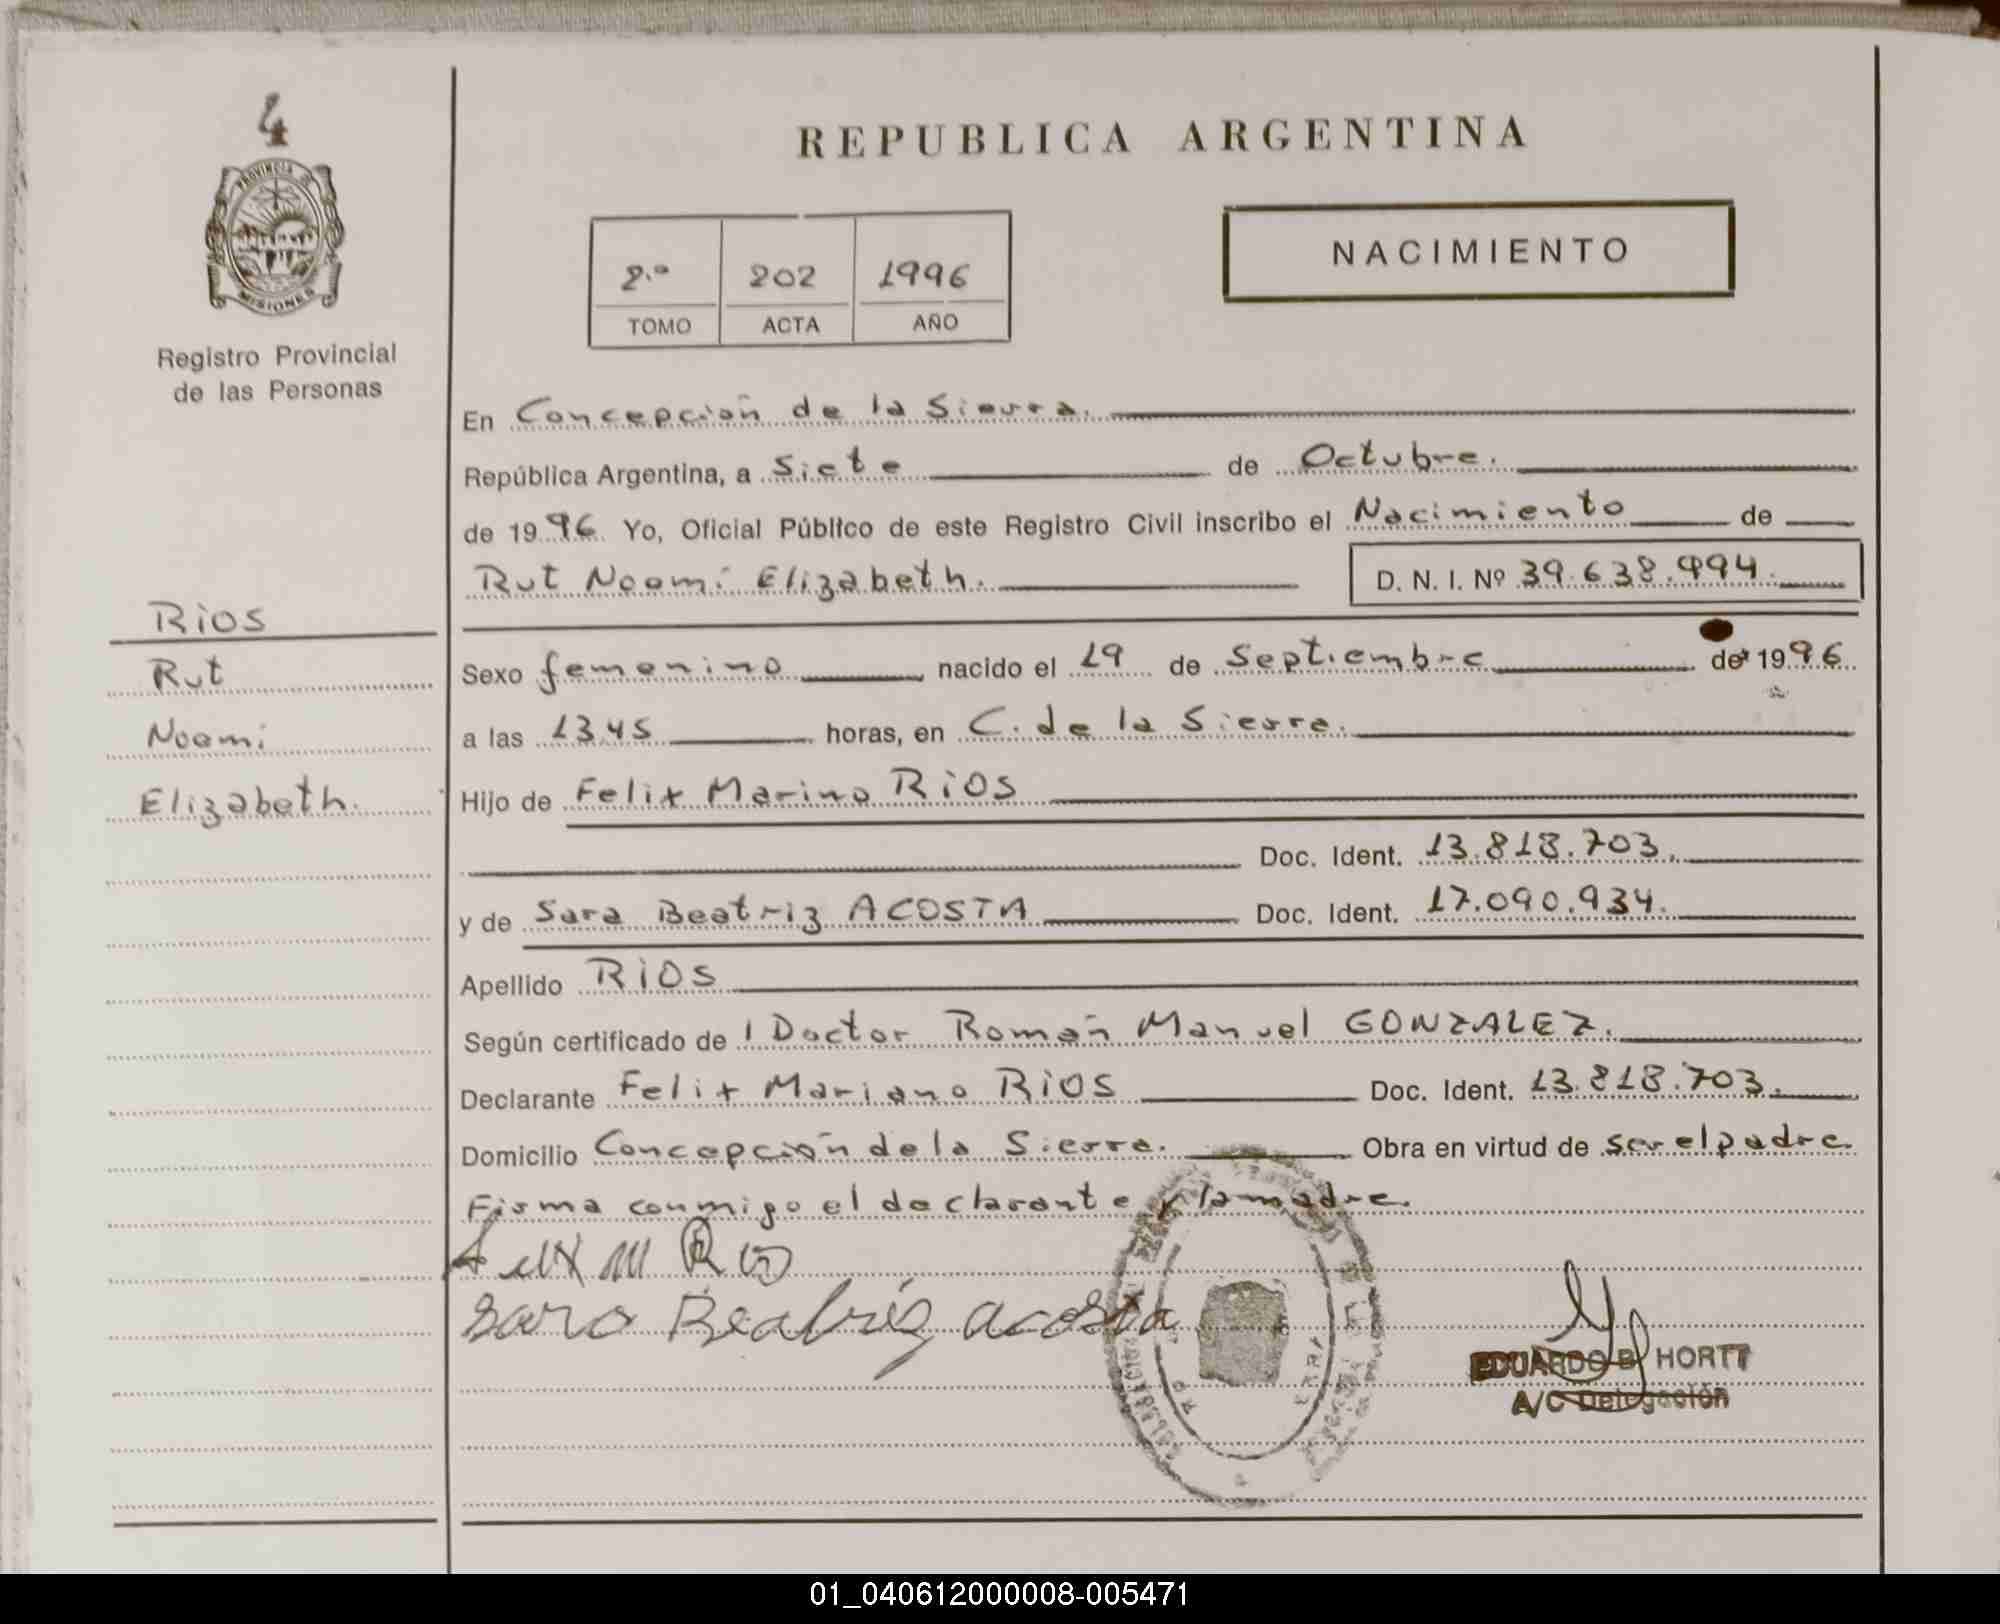 4
PROVINCIA DE
MISIONES
Registro Provincial
de las Personas
REPUBLICA ARGENTINA
NACIMIENTO
2.º 202 1996
TOMO ACTA AÑO
En Concepción de la Sierra.
República Argentina, a Siete de Octubre.
de 1996. Yo, Oficial Público de este Registro Civil inscribo el Nacimiento de
Rut Noemi Elizabeth. D. N. I. Nº 39.638.994.
Rios
Rut
Noemi
Elizabeth.
Sexo femenino nacido el 19 de Septiembre de 1996
a las 13,45 horas, en C. de la Sierra.
Hijo de Felix Marino RiOS
Doc. Ident. 13.818.703.
y de Sara Beatriz ACOSTA Doc. Ident. 17.090.934.
Apellido RiOS
Según certificado de l Doctor Román Manuel GONZALEZ.
Declarante Felix Mariano RiOS Doc. Ident. 13.818.703.
Domicilio Concepción de la Sierra. Obra en virtud de ser el padre.
Firma conmigo el declarante y la madre.
Felix M Rios
Sara Beatriz acosta
EDUARDO B. HORTT
A/C Delegación
01_040612000008-005471